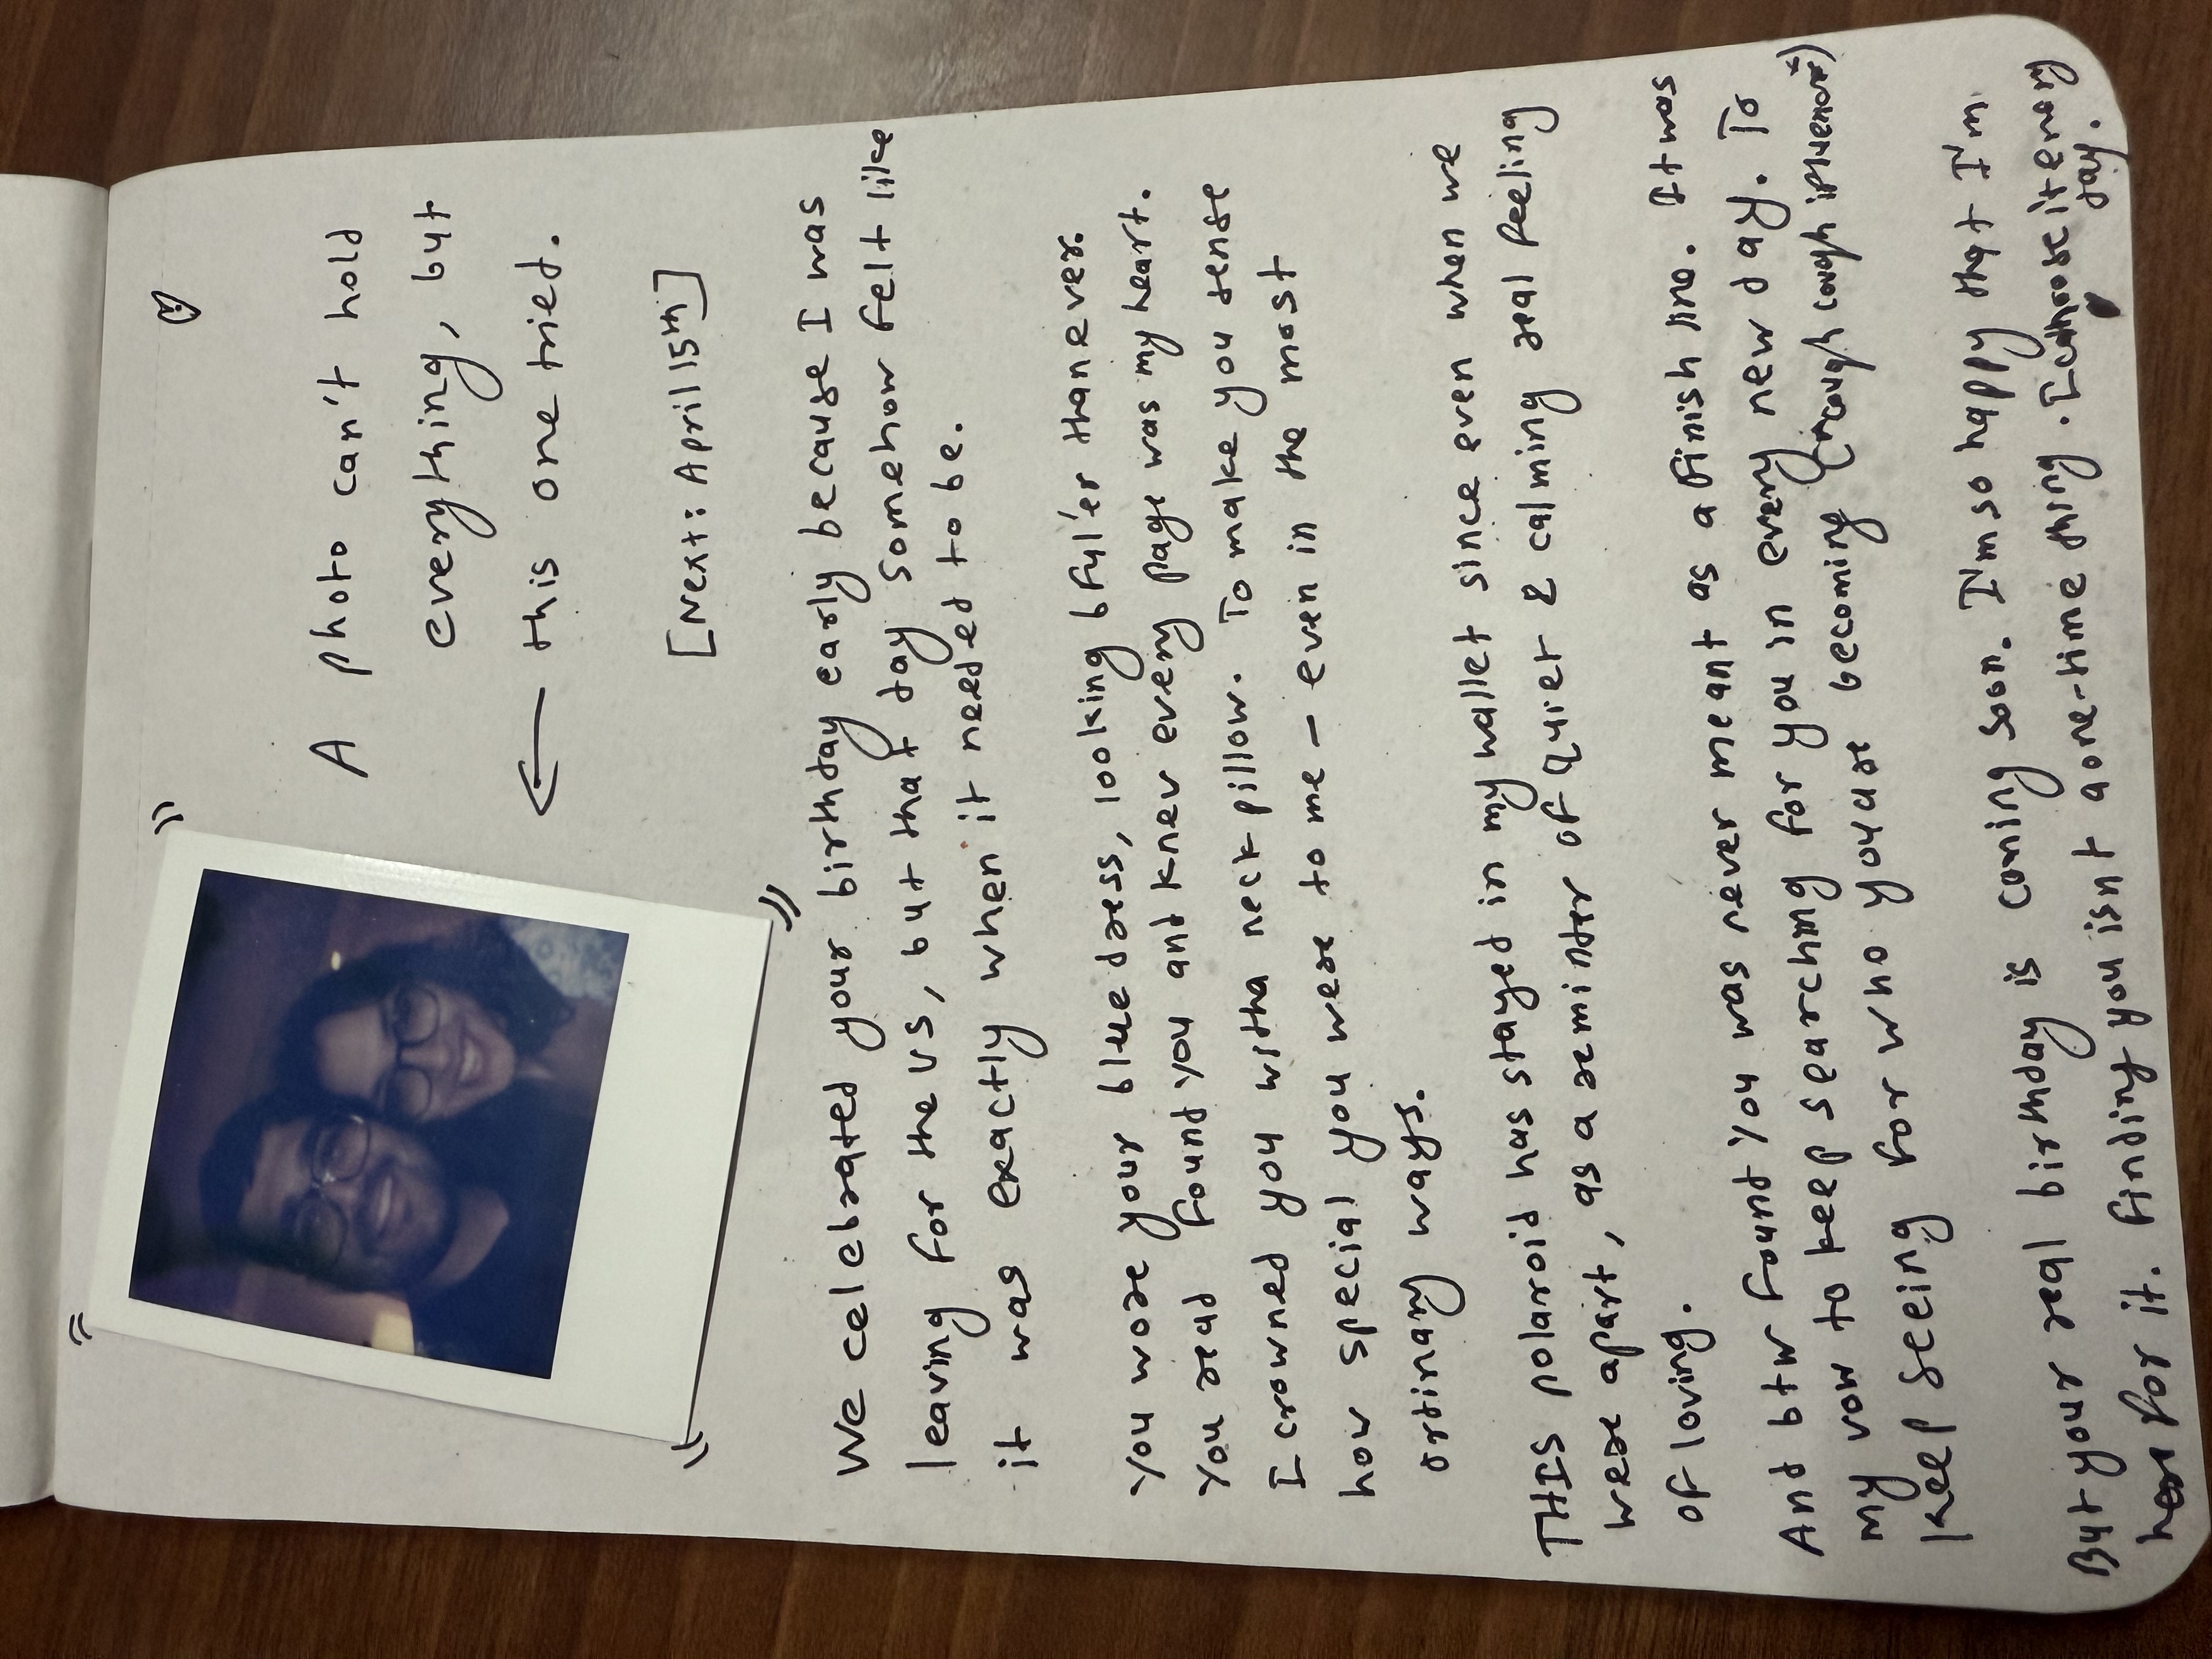 A photo can't hold
everything, but
this one tried.
[Next: April 15th]
We celebrated your birthday early because I was
leaving for the US, but that day somehow felt like
it was exactly when it needed to be.
You wore your blue dress, looking bful'er than ever.
You read found you and knew every page was my heart.
I crowned you with a neck pillow. To make you sense
how special you were to me – even in the most
ordinary ways.
THIS polaroid has stayed in my wallet since even when we
were apart, as a reminder of quiet & calming real feeling
of loving.
And btw Found You was never meant as a finish line. It was
my vow to keep searching for you in every new day. To
keep seeing for who you are becoming (cough cough
But your real birthday is coming soon. I'm so happy that I'm
here for it. Finding You isnt a one-time thing. I choose it every
day.